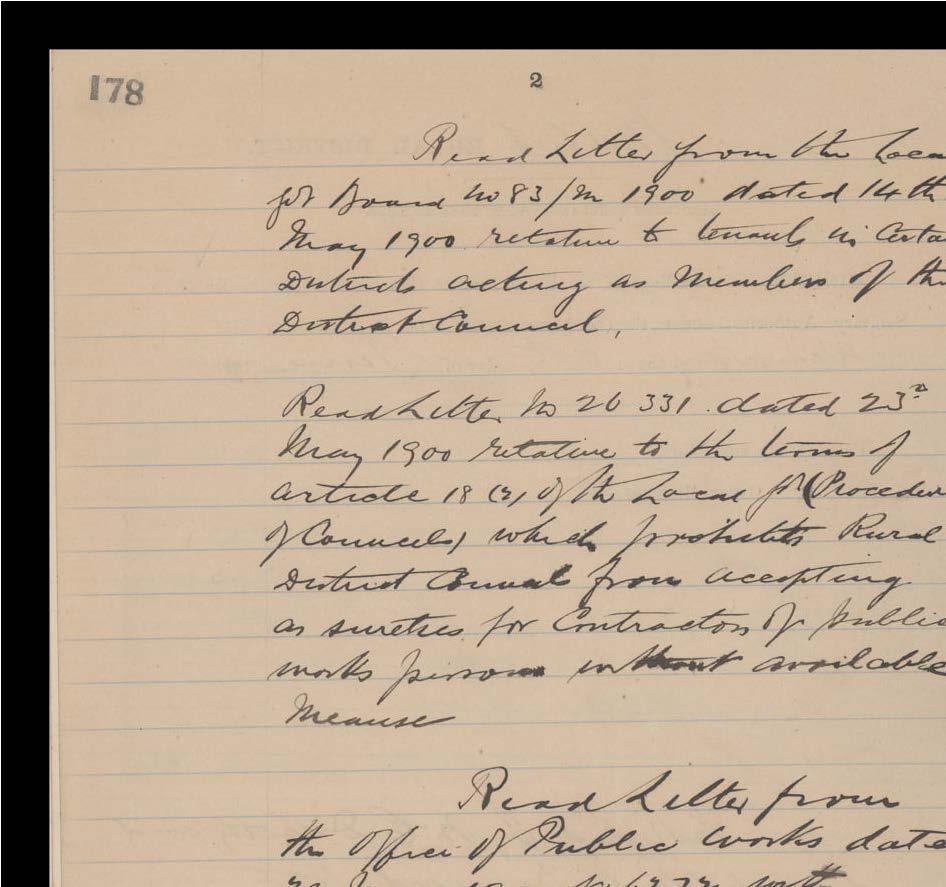 178
2
Read Letter from the Loca
gvt Board No 83/M 1900 dated 14th
May 1900 relative to tenants in Certa
Districts acting as Members of the
District Council,
Read Letter No 20 331. dated 23d
May 1900 relative to the terms of
article 18 of the Local gvt (Procedur
of Councils) which prohibits Rural
District Council from accepting
as sureties for Contractors of public
works persons without available
Meanse
Read Letter from
the Office of Public Works date